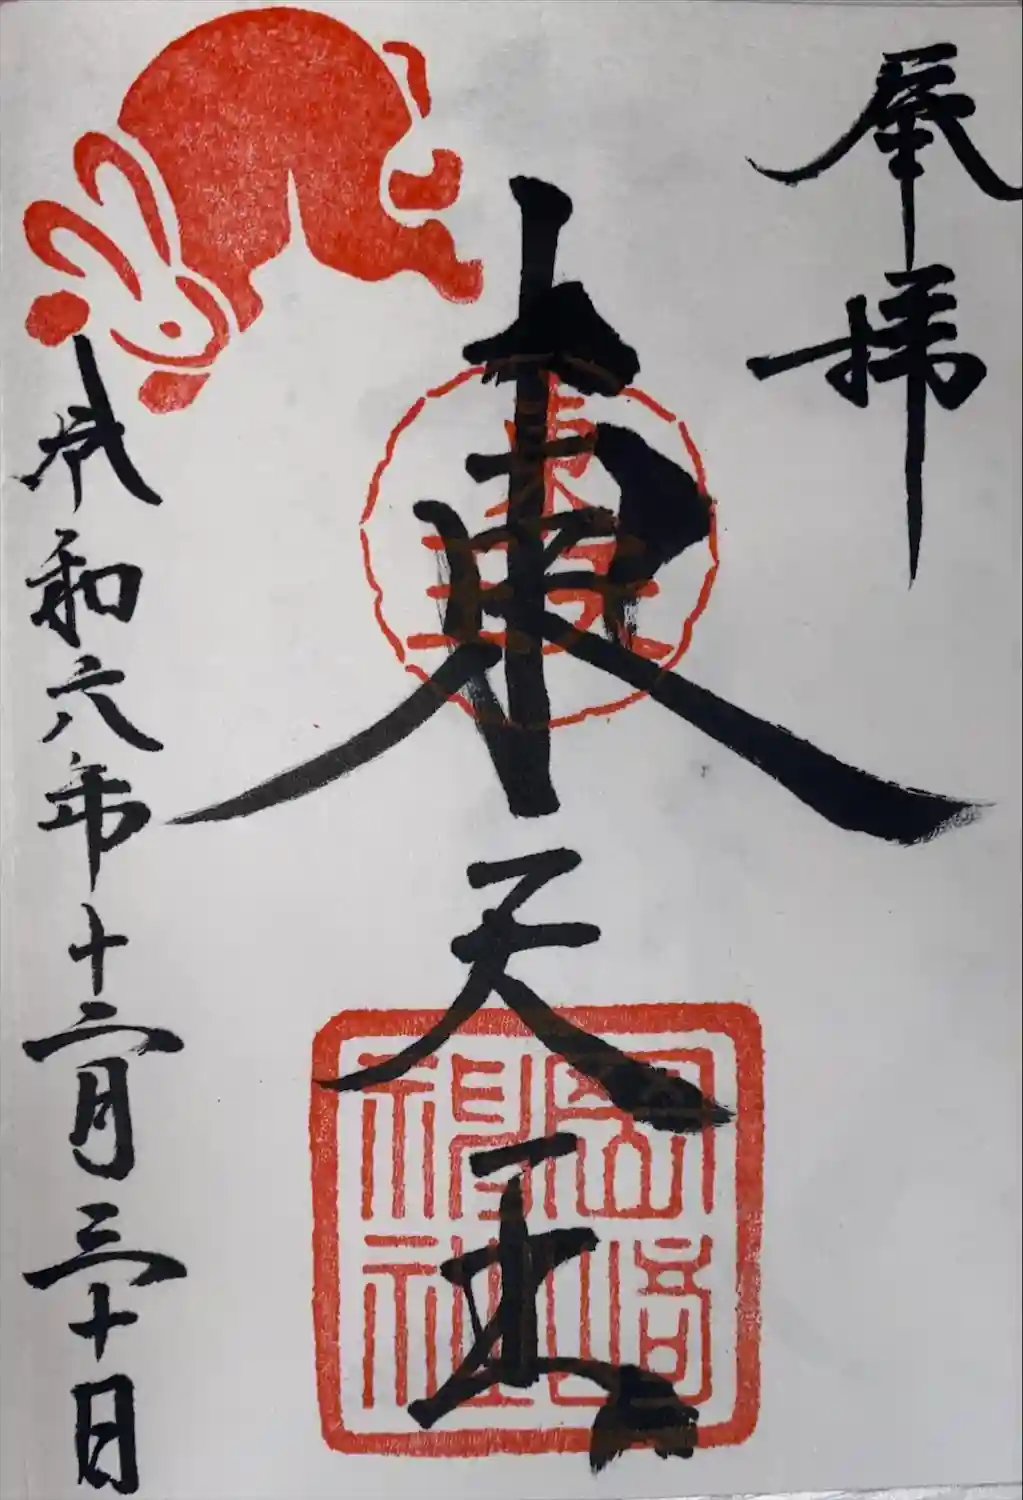 奉拝
東天王
東天王
岡崎神社
令和六年十二月三十日